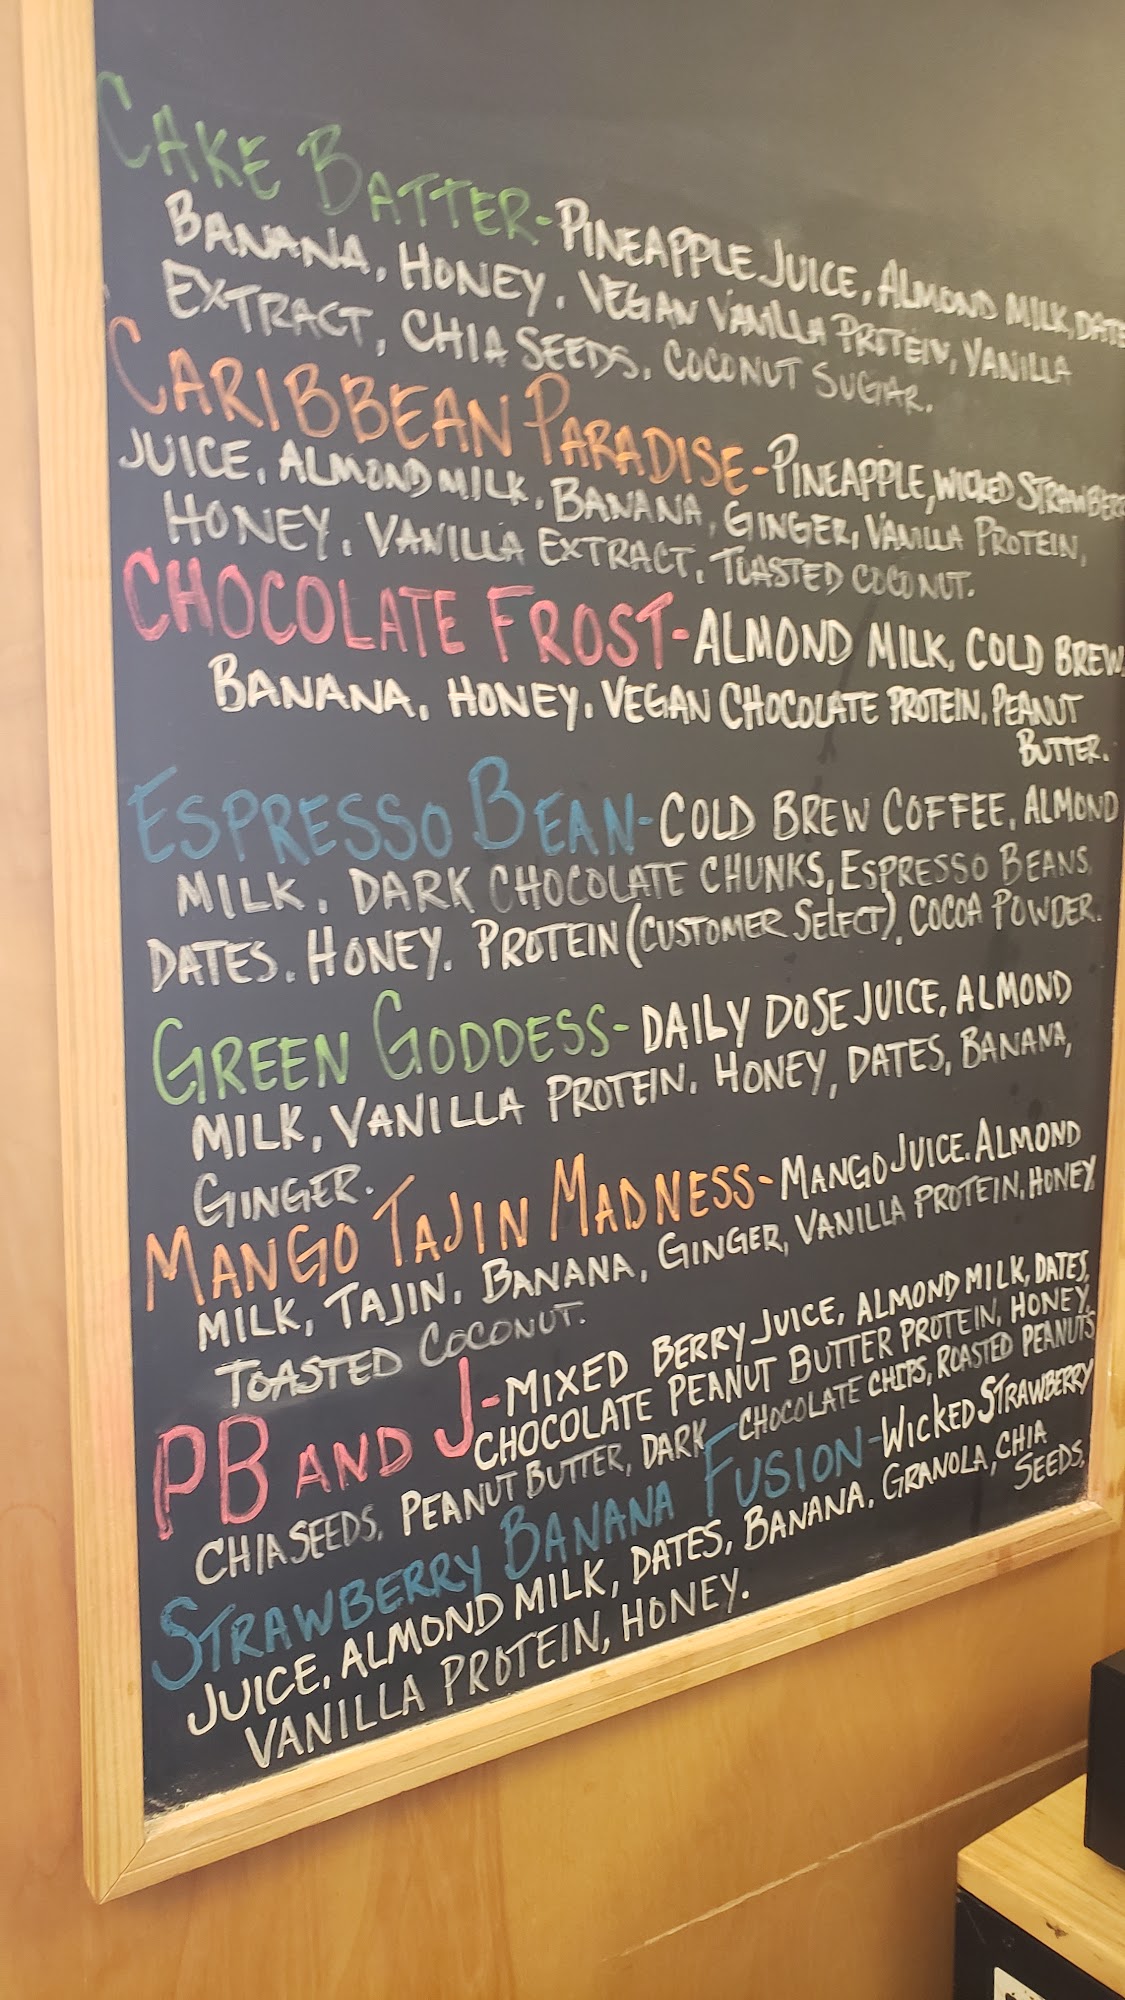 CAKE BATTER- PINEAPPLE JUICE, ALMOND MILK, DATE
BANANA, HONEY, VEGAN VANILLA PROTEIN, VANILLA
EXTRACT, CHIA SEEDS, COCONUT SUGAR.
CARIBBEAN PARADISE- PINEAPPLE, WICKED STRAWBER
JUICE, ALMOND MILK, BANANA, GINGER, VANILLA PROTEIN,
HONEY, VANILLA EXTRACT, TOASTED COCONUT.
CHOCOLATE FROST- ALMOND MILK, COLD BREW,
BANANA, HONEY, VEGAN CHOCOLATE PROTEIN, PEANUT
BUTTER.
ESPRESSO BEAN- COLD BREW COFFEE, ALMOND
MILK, DARK CHOCOLATE CHUNKS, ESPRESSO BEANS,
DATES, HONEY, PROTEIN (CUSTOMER SELECT), COCOA POWDER.
GREEN GODDESS- DAILY DOSE JUICE, ALMOND
MILK, VANILLA PROTEIN, HONEY, DATES, BANANA,
GINGER.
MANGO TAJIN MADNESS- MANGO JUICE, ALMOND
MILK, TAJIN, BANANA, GINGER, VANILLA PROTEIN, HONEY,
TOASTED COCONUT.
PB AND J- MIXED BERRY JUICE, ALMOND MILK, DATES,
CHOCOLATE PEANUT BUTTER PROTEIN, HONEY,
CHIA SEEDS, PEANUT BUTTER, DARK CHOCOLATE CHIPS, ROASTED PEANUTS
STRAWBERRY BANANA FUSION- WICKED STRAWBERRY
JUICE, ALMOND MILK, DATES, BANANA, GRANOLA, CHIA
SEEDS,
VANILLA PROTEIN, HONEY.